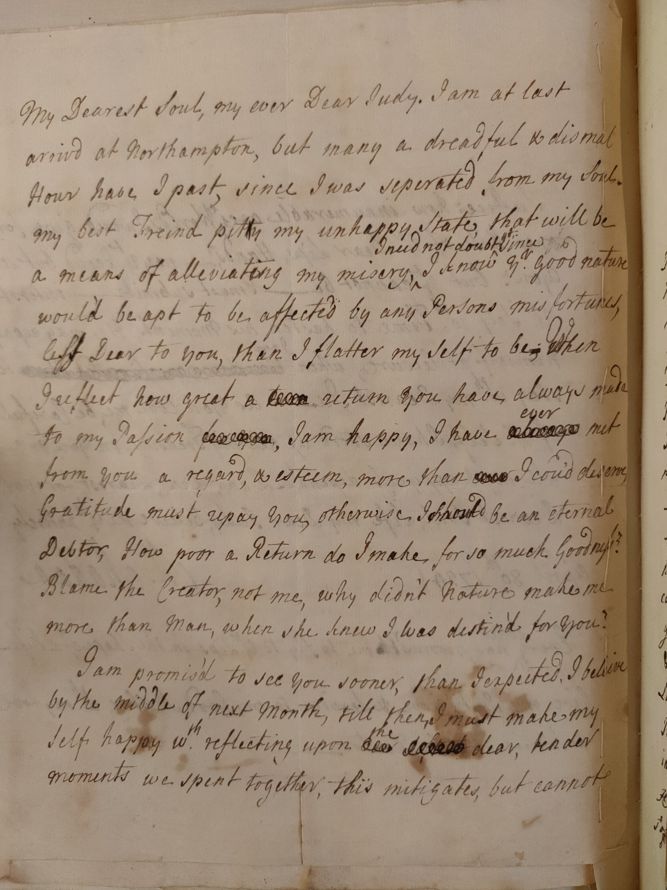 My Dearest Soul, my ever Dear Judy. I am at last
arrivd at Northampton, but many a dreadful & dismal
Hour have I past, since I was seperated from my Soul.
my best Freind pitty my unhappy State, that will be
I need not doubt it since
a means of alleviating my misery, I know yr. good nature
would be apt to be affected by any Persons misfortunes,
less Dear to you, than I flatter my self to be; When
I reflect how great a return you have always made
ever
to my Passion, I am happy, I have met
from you a regard, & esteem, more than I cou'd deserve,
Gratitude must repay you, otherwise I should be an eternal
Debtor, How poor a Return do I make, for so much Goodness?
Blame the Creator, not me, why didn't Nature make me
more than Man, when she knew I was destin'd for you?
I am promis'd to see you sooner, than I expected, I believe
by the middle of next Month, till then, I must make my
the
self happy wth. reflecting upon dear, tender
moments we spent together, this mitigates, but cannot